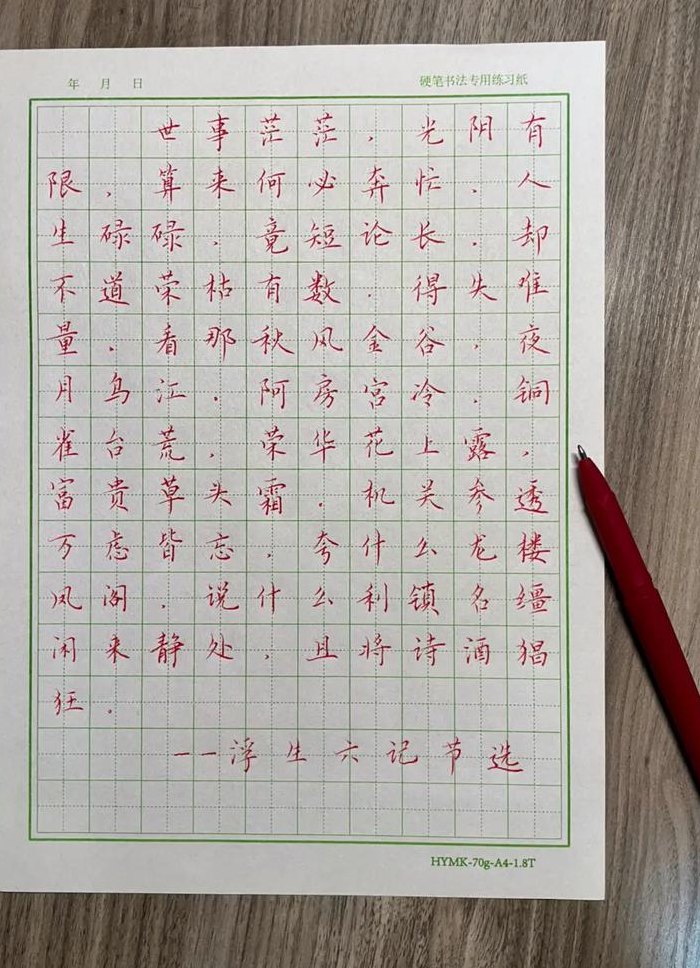 年 月 日 硬笔书法专用练习纸
世事茫茫，光阴有
限，算来何必奔忙．人
生碌碌，竟短论长．却
不道荣枯有数．得失难
量．看那秋风金谷，夜
月乌江．阿房宫冷．铜
雀台荒，荣华花上露，
富贵草头霜．机关参透
万虑皆忘，夸什么龙楼
凤阁．说什么利镇名缰
闲来静处，且将诗酒猖
狂．
——浮生六记节选
HYMK-70g-A4-1.8T